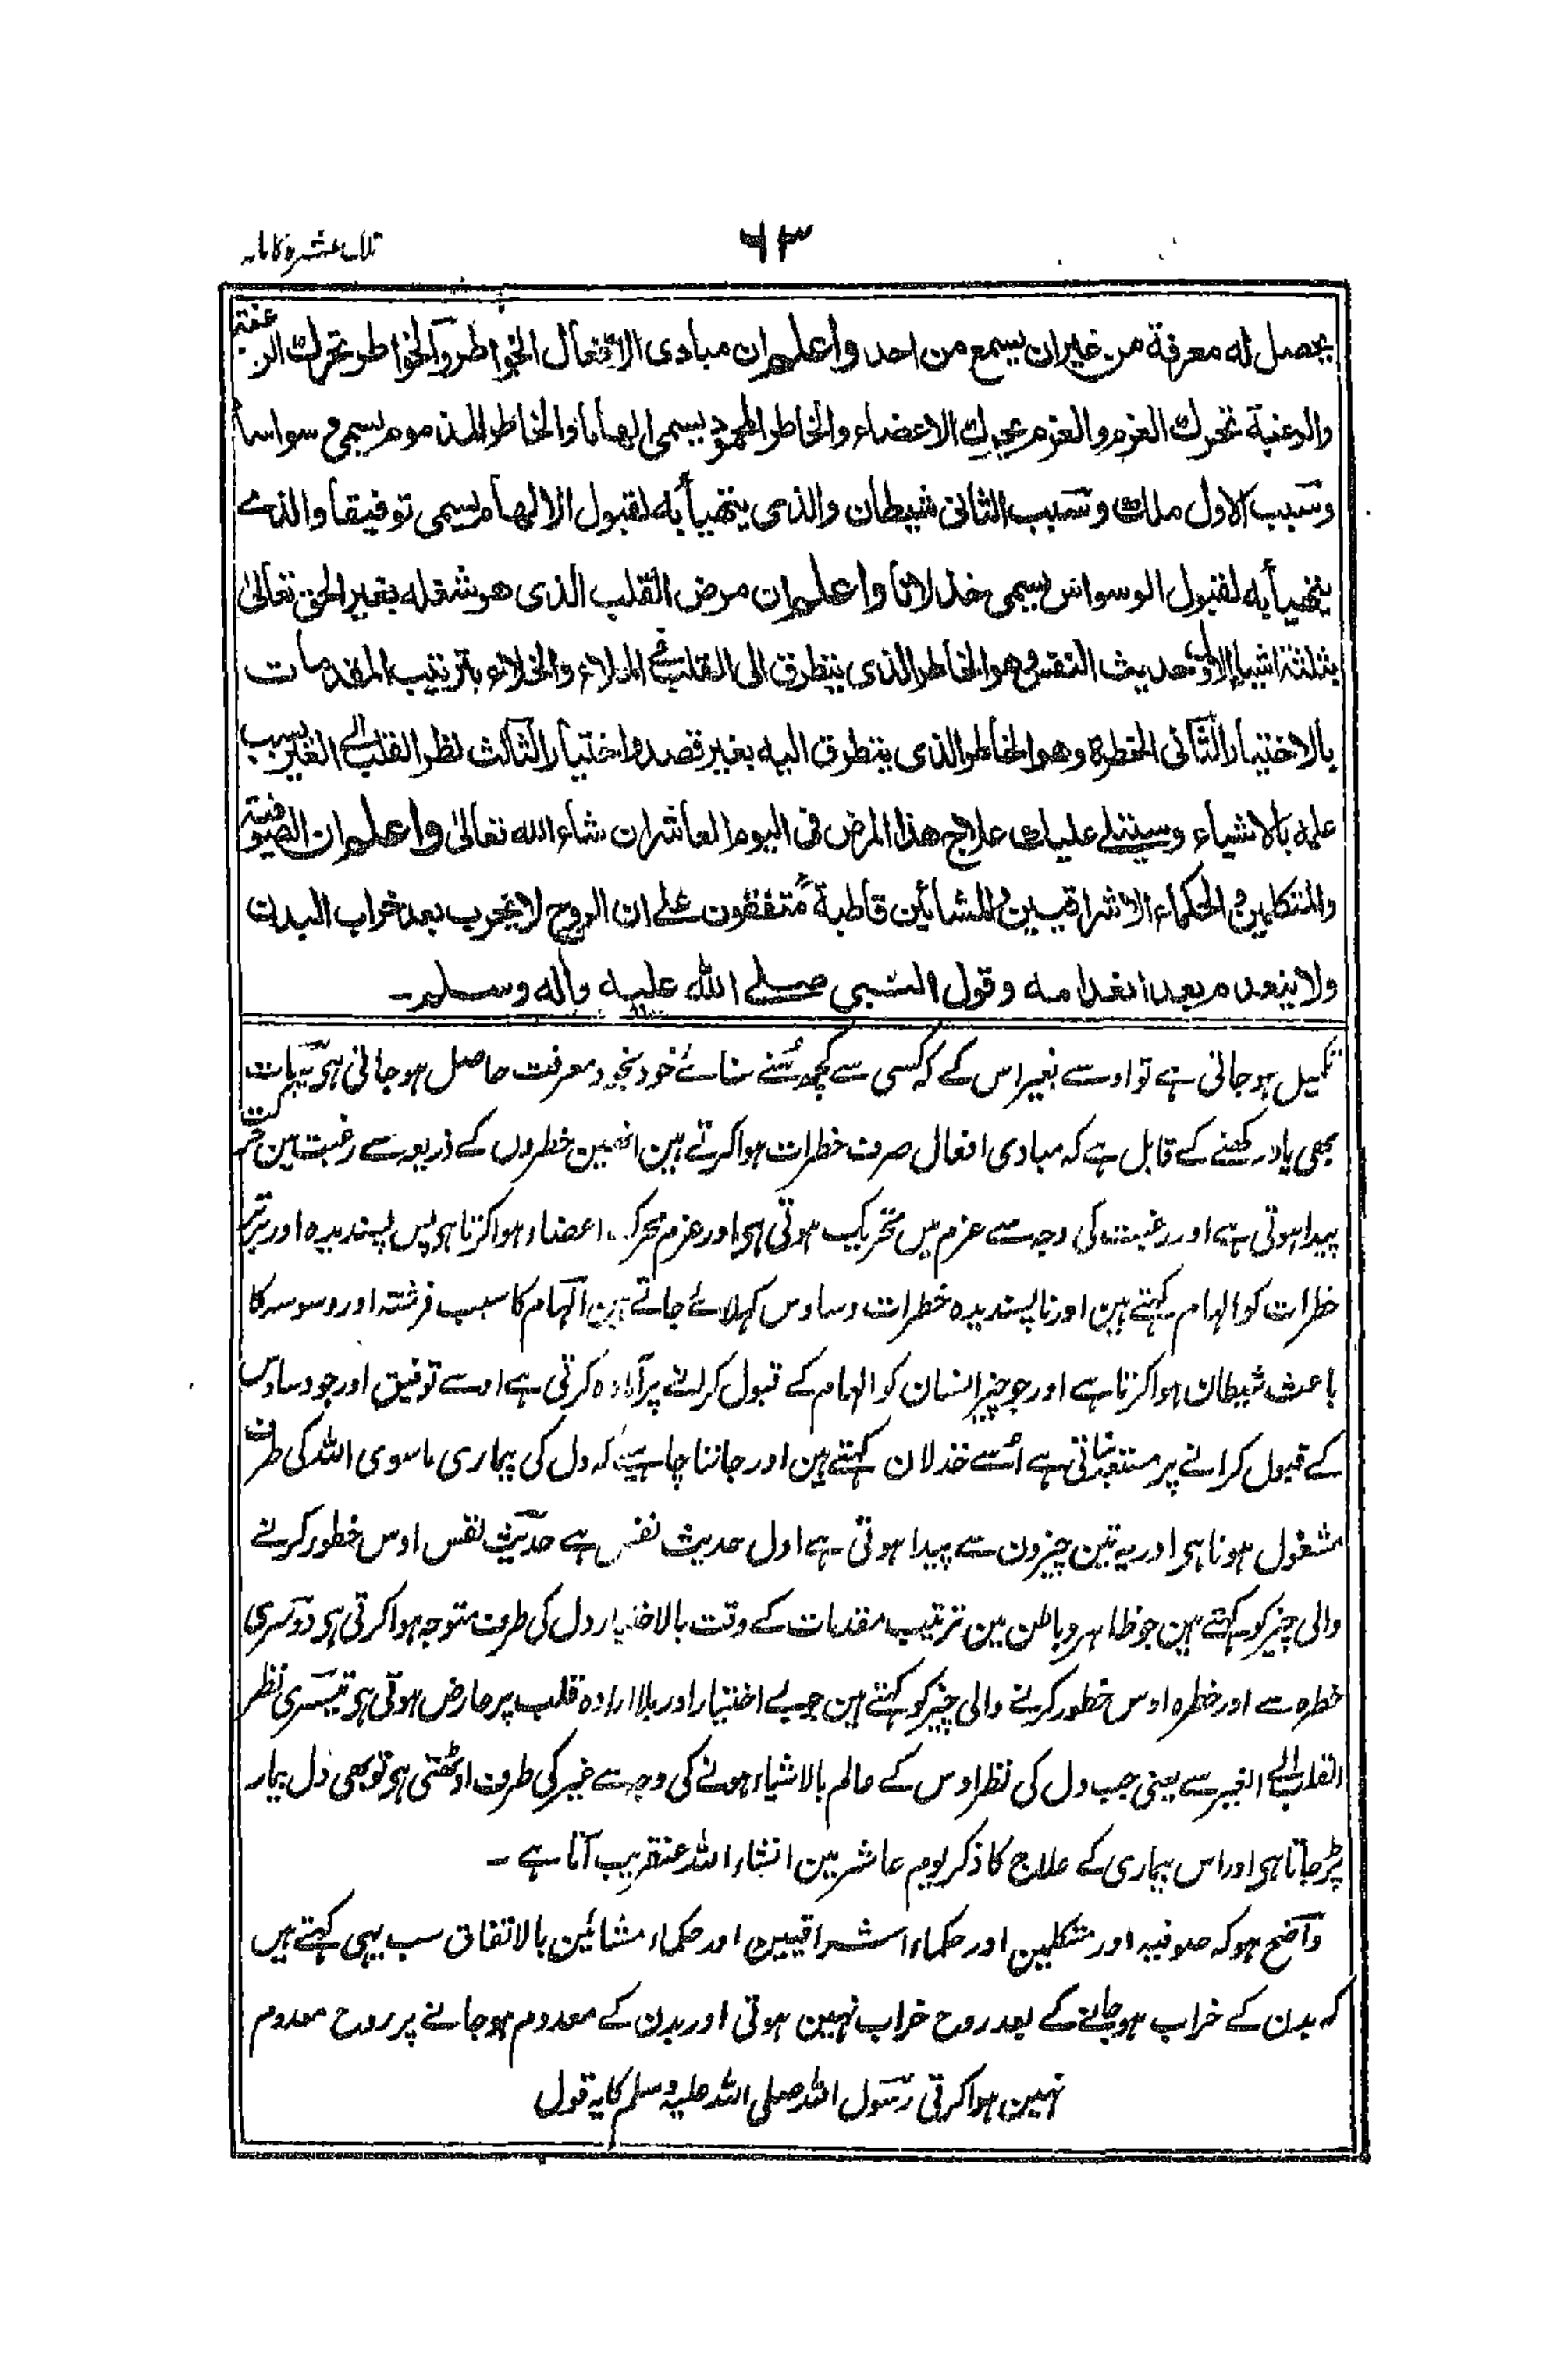 ۶۳
تلك عشرة كاملہ
يحصل له معرفة من غيران يسمع من احد واعلم ان مبادى الافعال الخواطر والخواطر تحرك الرغبة
والرغبة تحرك العزم والعزم يحرك الاعضاء والخاطر المحمود يسمى الهاما والخاطر المذموم يسمى وسواسا
وسبب الاول ملك وسبب الثانى شيطان والذى يتهيأ به لقبول الالهام يسمى توفيقا والذے
يتهيأ به لقبول الوسواس يسمى خذلانا واعلم ان مرض القلب الذى هو شغله بغير الحق تعالىٰ
بثلثة اشياء الاول حديث النفس وهو الخاطر الذى يتطرق الى القلب فے الملاء والخلاء بترتيب المقدمات
بالاختيار الثانى الخطرة وهو الخاطر الذى يتطرق اليه بغير قصد واختيار الثالث نظر القلب الے الغير بسبب
علمه بالاشياء وسيتلے عليك علاج هذا المرض فى اليوم العاشر ان شاء الله تعالىٰ واعلم ان الصوفية
والمتكلمين والحكماء الاشراقيين والمشائين قاطبة متفقون علے ان الروح لا يخرب بعد خراب البدن
ولا ينعدم بعد انعدامه وقول النبى صلے الله عليه وآله وسلم۔
تکمیل ہوجاتی ہے تو اوسے بغیر اس کے کہ کسی سے کچھ سُنے سنائے خود بخود معرفت حاصل ہوجاتی ہی یہ بات
بھی یاد رکھنے کے قابل ہے کہ مبادی افعال صرف خطرات ہوا کرتے ہین انھین خطروں کے ذریعہ سے رغبت مین حرکت
پیدا ہوتی ہے اور رغبت کی وجہ سے عزم میں تحریک ہوتی ہی اور عزم محرک اعضاء ہوا کرتا ہی پس پسندیدہ اور برتر
خطرات کو الہام کہتے ہین اور ناپسندیدہ خطرات وساوس کہلائے جاتے ہین الہام کا سبب فرشتہ اور وسوسہ کا
باعث شیطان ہوا کرتا ہے اور جو چیز انسان کو الہام کے قبول کرلنے پر آمادہ کرتی ہے اوسے توفیق اور جو وساوس
کے قبول کرانے پر مستعد بناتی ہے اُسے خذلان کہتے ہین اور جاننا چاہیے کہ دل کی بیماری ماسوی اللہ کی طرف
مشغول ہونا ہی اور یہ تین چیزون سے پیدا ہوتی ہے اول حدیث نفس ہے حدیث نفس اوس خطور کرنے
والی چیز کو کہتے ہین جو ظاہر و باطن مین ترتیب مقدمات کے وقت بالاختیار دل کی طرف متوجہ ہوا کرتی ہی دوسری
خطرہ سے اور خطرہ اوس خطور کرنے والی چیز کو کہتے ہین جو بے اختیار اور بلا ارادہ قلب پر عارض ہوتی ہی تیسری نظر
القلب الے الغیر سے یعنی جب دل کی نظر اوس کے عالم بالاشیاء ہونے کی وجہ سے غیر کی طرف اوٹھتی ہی تو بھی دل بیمار
پڑجاتا ہی اور اس بیماری کے علاج کا ذکر یوم عاشر مین انشاء اللہ عنقریب آتا ہے ۔
واضح ہو کہ صوفیہ اور متکلمین اور حکماء اشراقیین اور حکماء مشائین بالاتفاق سب یہی کہتے ہیں
کہ بدن کے خراب ہوجانے کے بعد روح خراب نہین ہوتی اور بدن کے معدوم ہوجانے پر روح معدوم
نہین ہوا کرتی رسول اللہ صلی اللہ علیہ وسلم کا یہ قول